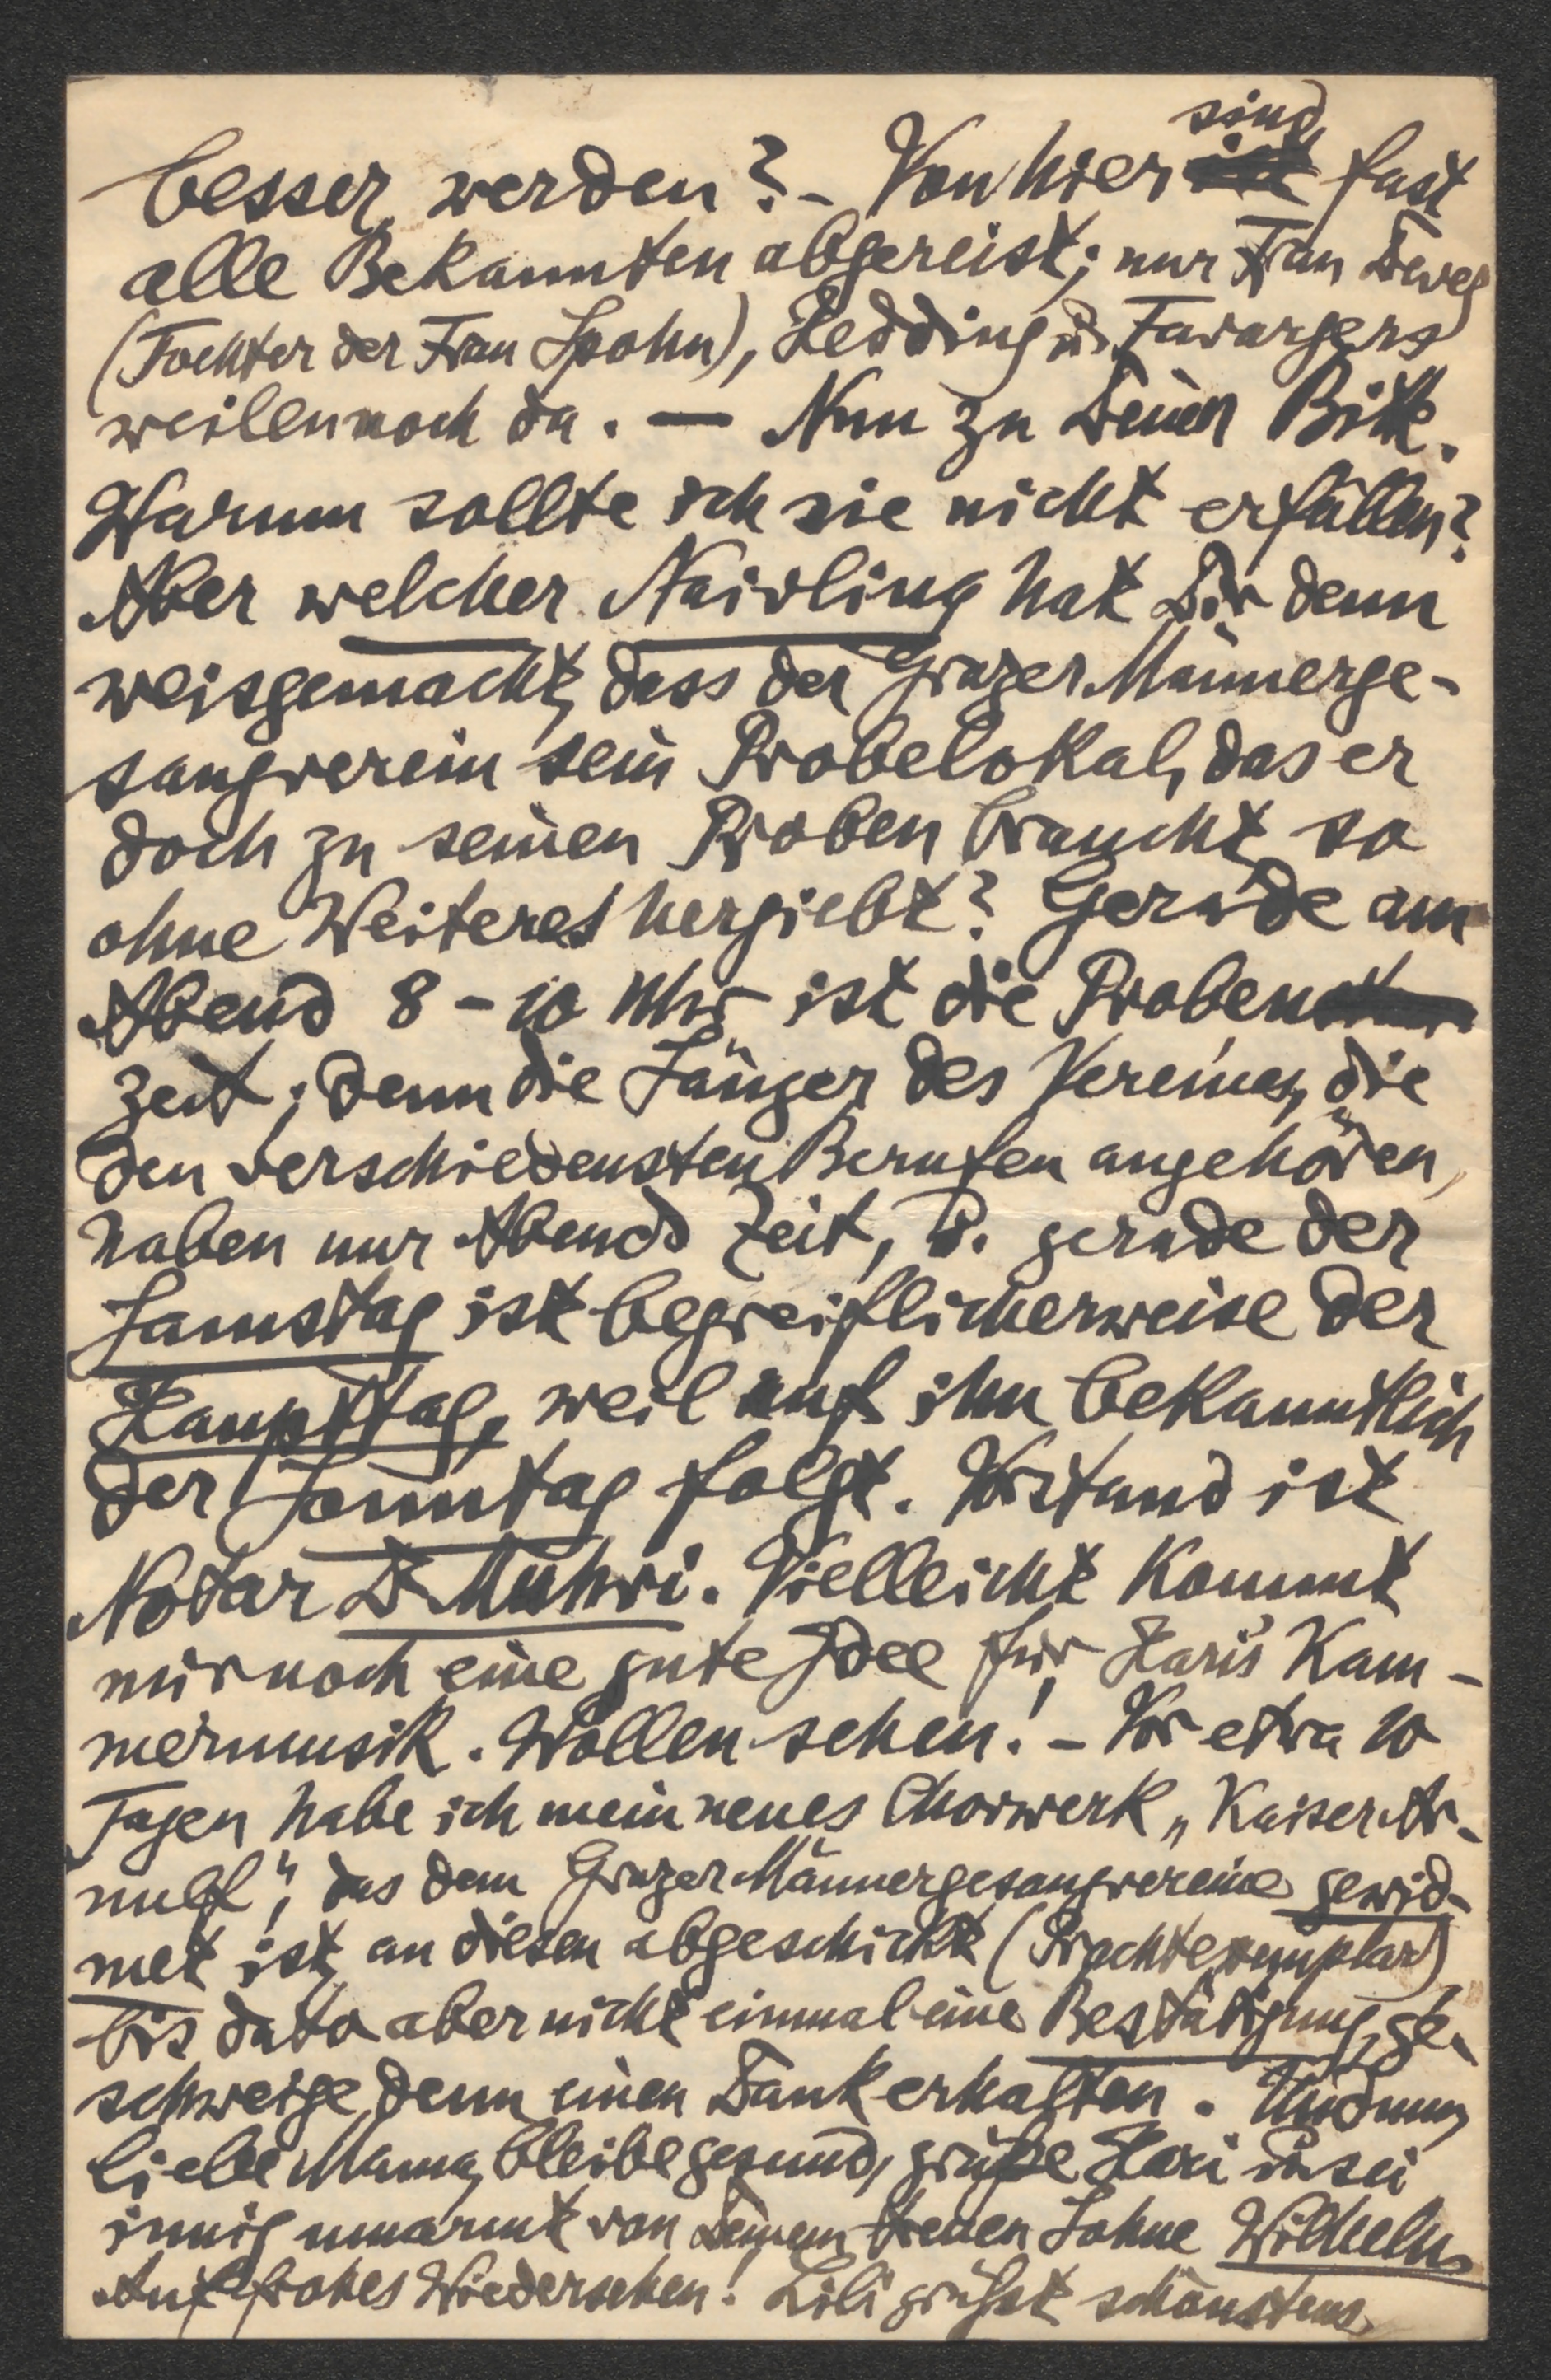 sind
besser werden? - Von hier ist fast
alle Bekannten abgereist; nur Frau
(Tochter der Frau Spohn), Hedding u. Tavargers
weilen noch da. — Nun zu Deiner Bitte.
Warum sollte ich sie nicht erfüllen?
Aber welcher Naivling hat Dir denn
weisgemacht, dass der Grazer Männerge-
sangverein sein Probelokal, das er
doch zu seinen Proben braucht, so
ohne Weiteres hergiebt? Gerade am
Abend 8 - 10 Uhr ist die Proben
zeit; denn die Sänger des Vereines, die
den verschiedensten Berufen angehören,
haben nur Abends Zeit, u. gerade der
Samstag ist begreiflicherweise der
Haupttag, weil auf ihn bekanntlich
der Sonntag folgt. Vorstand ist
Notar Dr Muhri. Vielleicht kommt
mir noch eine gute Idee für Hari's Kam-
mermusik. Wollen sehen! - Vor etwa 10
Tagen habe ich mein neues Chorwerk „Kaiser Ar-
nulf“, das dem Grazer Männergesangvereine gewid-
met ist, an diesen abgeschickt (Prachtexemplar)
bis dato aber nicht einmal eine Bestätigung, ge-
schweige denn einen Dank erhalten. Und nun,
liebe Mama, bleibe gesund, grüße Hari u. sei
innig umarmt von Deinem treuen Sohne Wilhelm.
Auf frohes Wiedersehen! Lili grüßt schönstens.